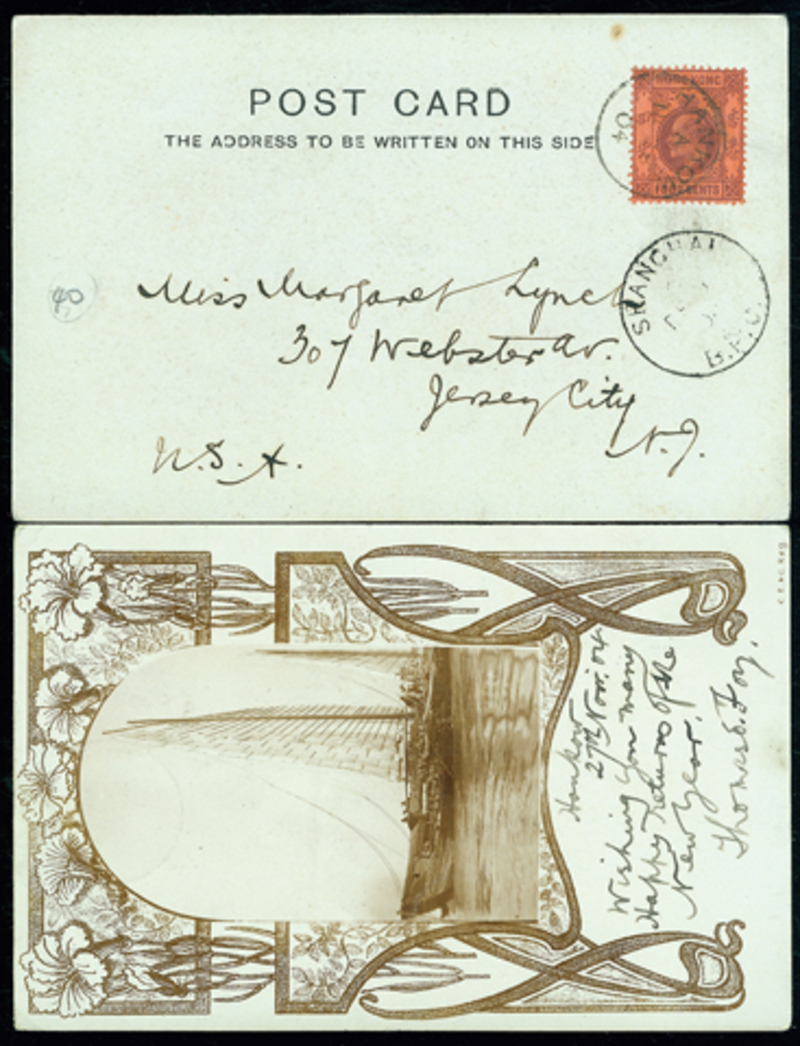 POST CARD
THE ADDRESS TO BE WRITTEN ON THIS SIDE
HONG KONG
CENTS
HANKOW
A
04
SHANGHAI
B.P.O.
40
Miss Margaret Lynch
307 Webster Av.
Jersey City
N.J.
U.S.A.
Hankow
27th Nov. 04
Wishing you many
Happy returns of the
New Year.
Foy.